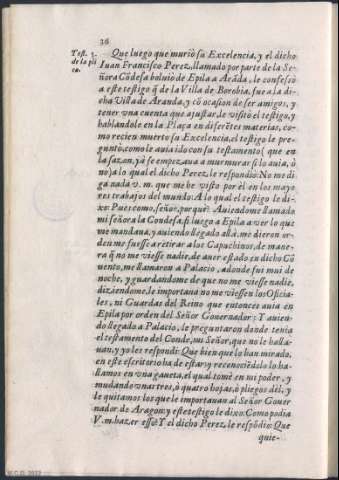 36
Test. 3.
de la pli
ca.
Que luego que murió su Excelencia, y el dicho
Iuan Francisco Perez, llamado por parte de la Se-
ñora Cõdesa boluiò de Epila a Arãda, le confessò
a este testigo q̃ de la Villa de Borobia, fue a la di-
cha Villa de Aranda, y cõ ocasion de ser amigos, y
tener vna cuenta que ajustar, le visitò el testigo, y
hablandole en la Plaça en diferẽtes materias, co-
mo recien muerto su Excelencia, el testigo le pre-
guntò, como le auia ido con su testamento (que en
la sazon, yà se empezaua a murmurar si lo auia, ò
no) a lo qual el dicho Perez, le respondiò: No me di
ga nada v. m. que me he visto por èl en los mayo
res trabajos del mundo: A lo qual el testigo le di-
xo: Pues como, señor, por què? Auiendome llamado
mi señora la Condesa, p̃. luego a Epila a ver lo que
me mandaua, y auiendo llegado allà, me dieron or-
den me fuesse a retirar a los Capuchinos, de mane-
ra q̃ no me viesse nadie, de auer estado en dicho Cõ
uento, me llamaron a Palacio, adonde fui mui de
noche, y guardandome de que no me viesse nadie,
diziendome, le importaua no me viessen los Oficia-
les, ni Guardas del Reino que entonces auia en
Epila por orden del Señor Gouernador; Y auien-
do llegado a Palacio, le preguntaron donde tenia
el testamento del Conde, mi Señor, que no le halla-
uan, y yo les respondi: Que bien que lo han mirado,
en este escritorio ha de estar, y reconociẽdolo lo ha-
llamos en vna gaueta, el qual tomè en mi poder, y
mudando vnas tres, ò quatro hojas, ò pliegos dèl, y
le quitamos los que le importauan al Señor Gouer
nador de Aragon; y este testigo le dixo: Como podia
V. m. hazer esso? Y el dicho Perez, le respõdiò: Que
quie-